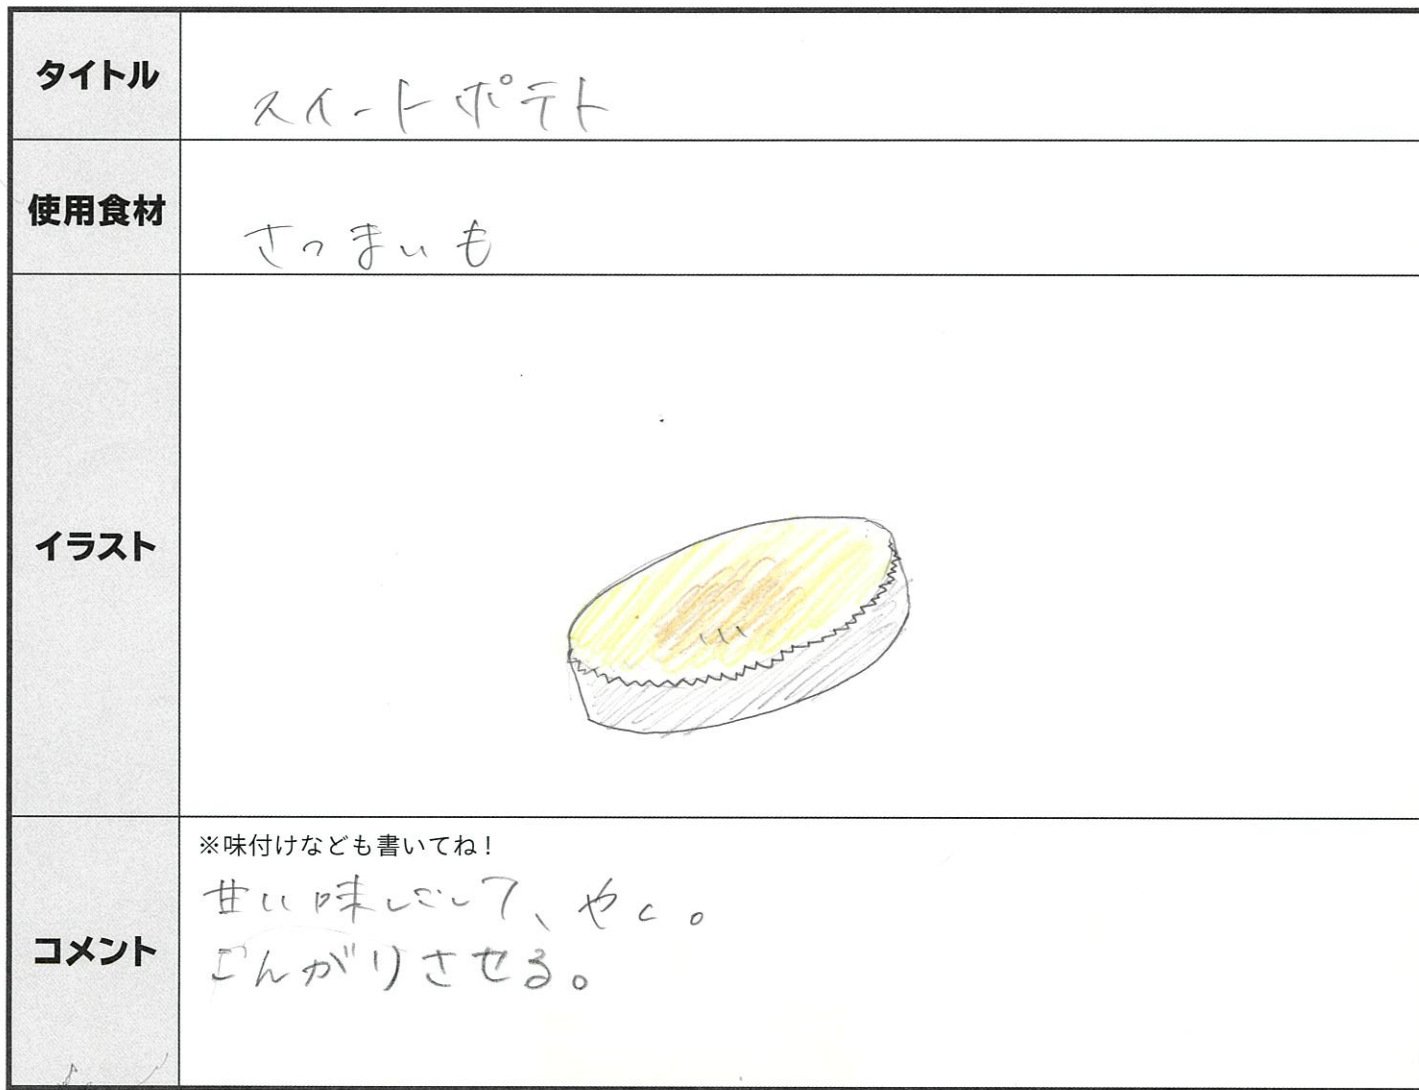 タイトル
スイートポテト
使用食材
さつまいも
イラスト
コメント
※味付けなども書いてね!
甘い味にして、やく。
こんがりさせる。